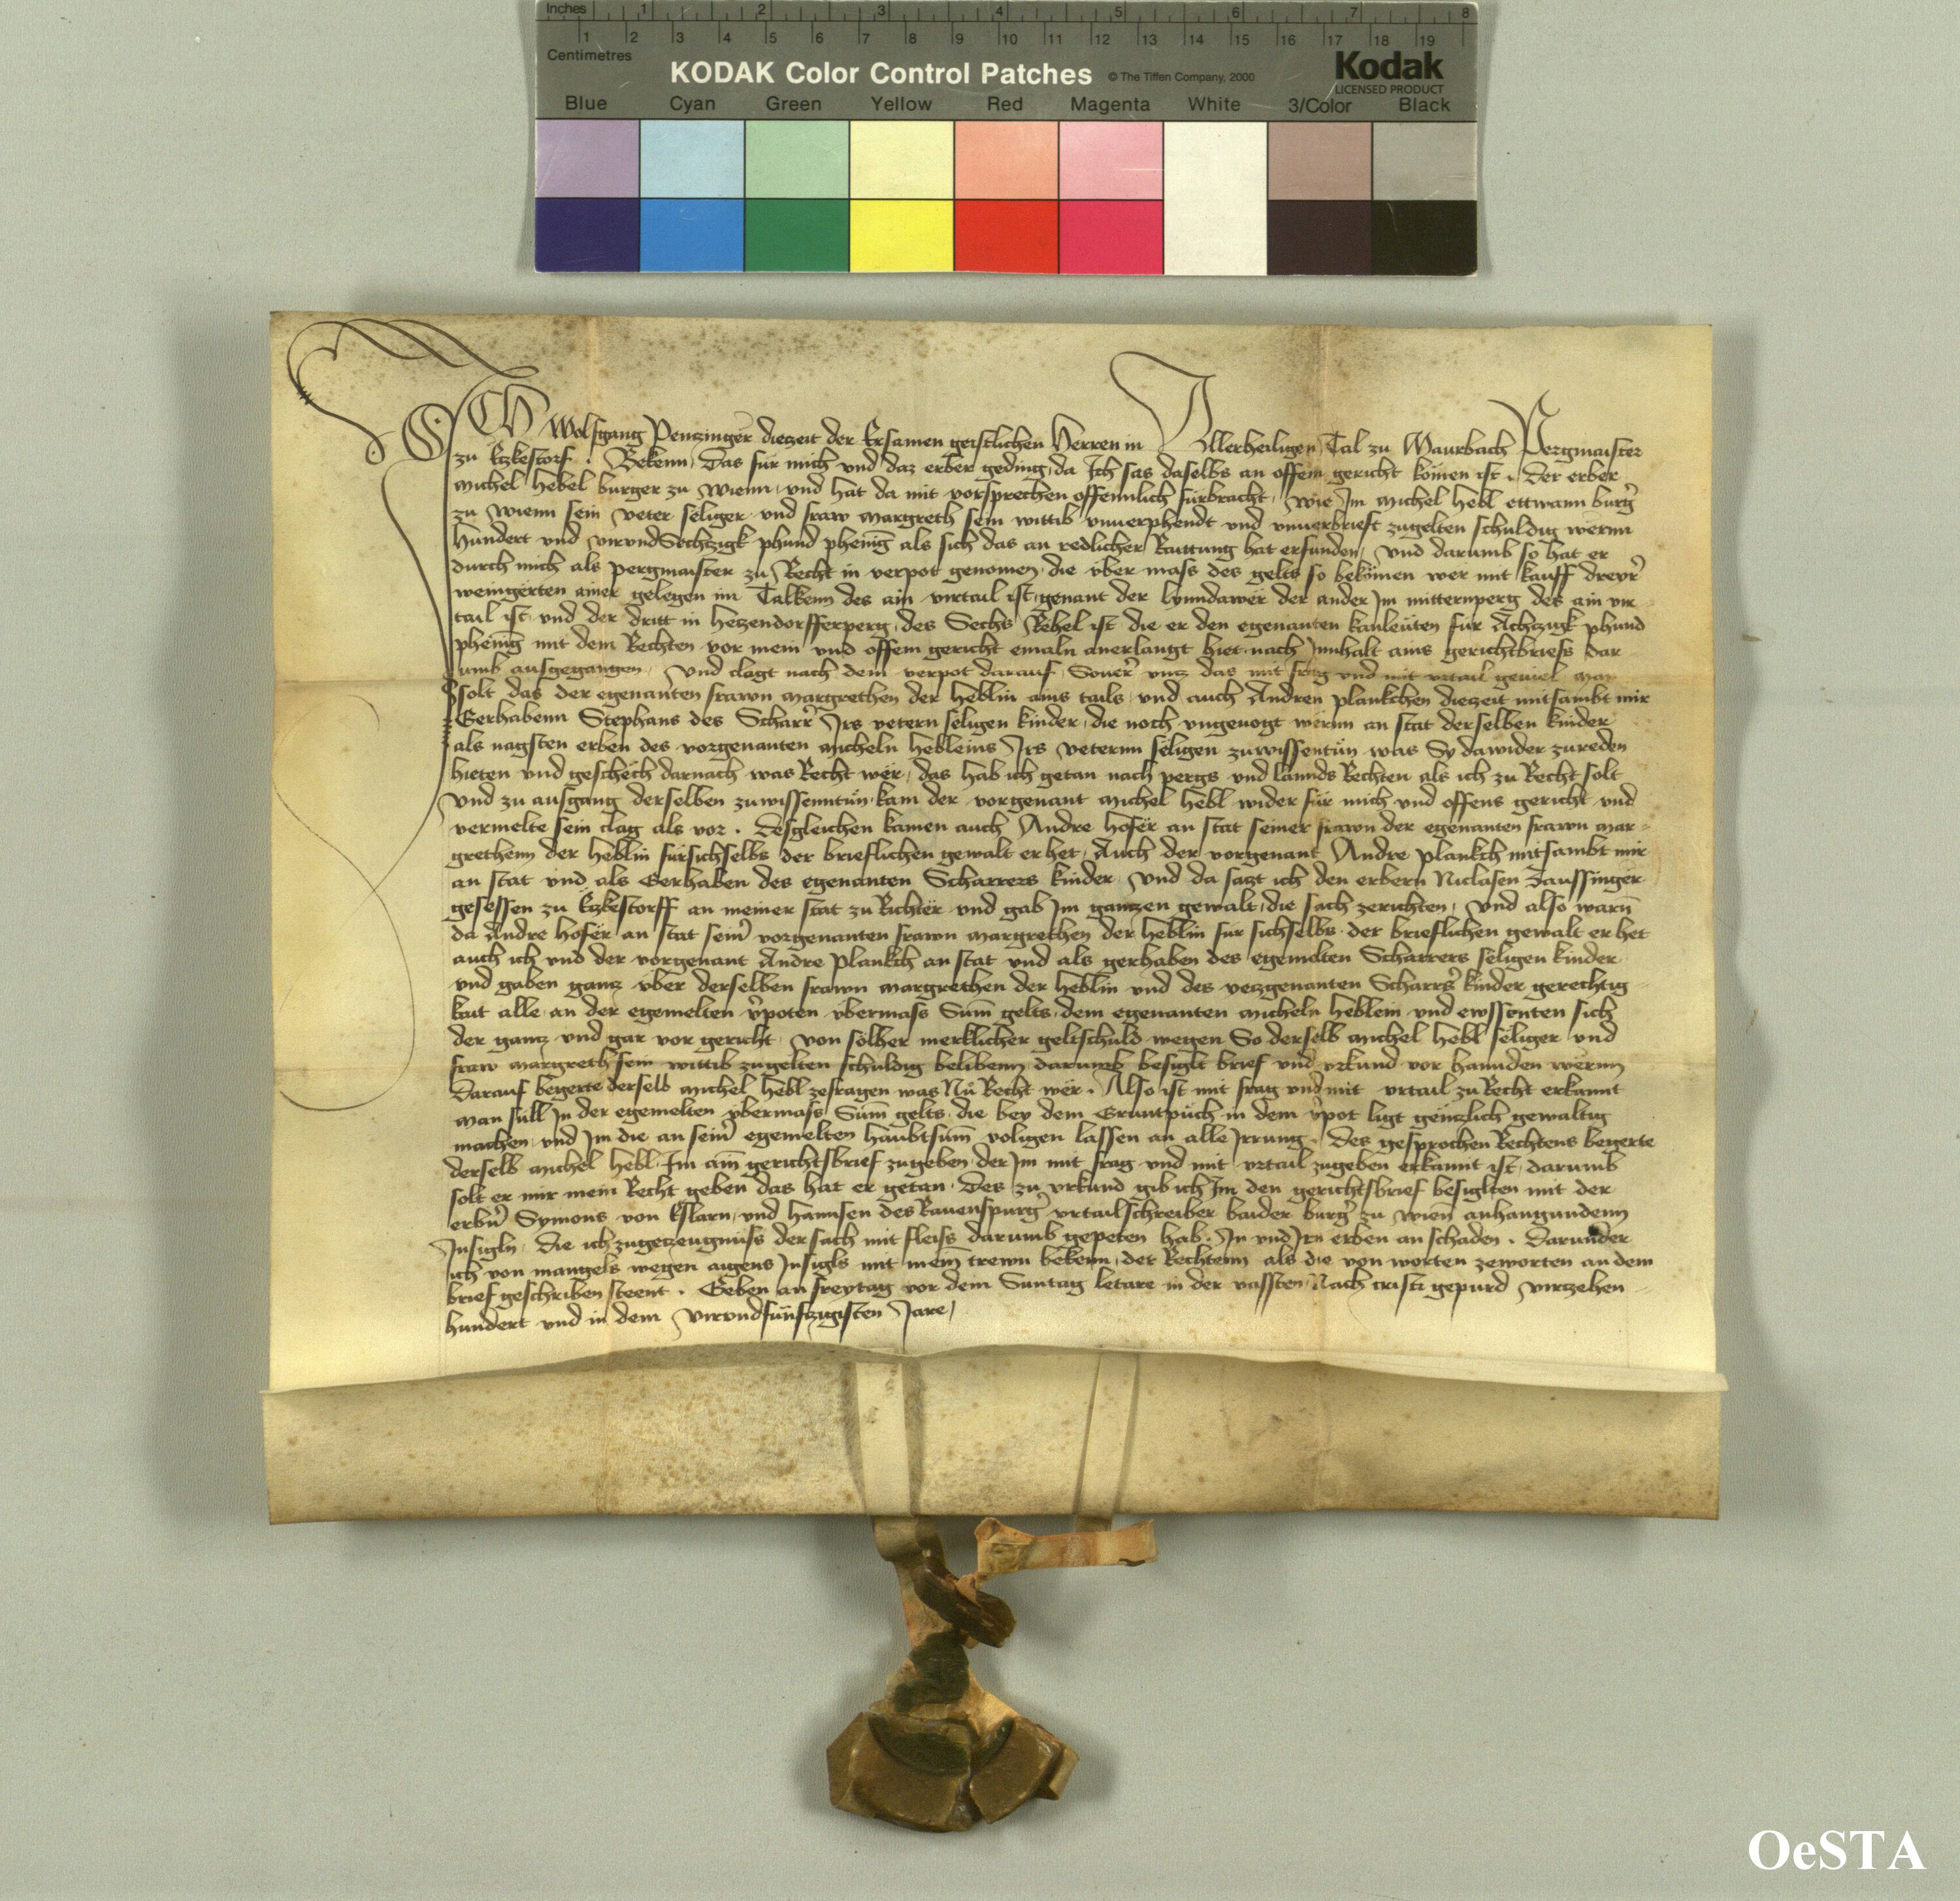 Inches 1 2 3 4 5 6 7 8
1 2 3 4 5 6 7 8 9 10 11 12 13 14 15 16 17 18 19
Centimetres
KODAK Color Control Patches © The Tiffen Company, 2000 Kodak
LICENSED PRODUCT
Blue Cyan Green Yellow Red Magenta White 3/Color Black
ICH Wolfgang Penzinger diezeit der Ersamen geistlichen Herren in Allerheiligen Tal zu Maurbach Pergmaister
zu Eczkestorf . Bekenn, Das für mich und daz erber geding, da Ich sas daselbs an offem gericht komen ist . Der erber
michel Hebel burger zu wienn, und hat da mit vorsprechen offennlich fürbracht, wie Im michel Hebl ettwann burger
zu wienn sein veter seliger und fraw margreth sein wittib vnuerphendt und vnuerbrieft zugelten schuldig wernn
Hundert und virundSechtzigk phund phenig als sich das an redlicher Raittung hat erfunden, und darumb so hat er
durch mich als pergmaister zu Recht in verpot genomen, die über mass des gelts so bekömen wer mit kauff dreyr
weingerten ainer gelegen im Talkenn des ain virtail ist, genant der lynndawer der ander Im mitternperg des ain vir
tail ist, und der dritt in Hetzendorfferperg, des Sechs Rebel ist die er den egenanten kanleuten für Achczigk phund
phenig mit dem Rechten vor mein und offem gericht emaln anerlangt hiet, nach Innhalt ains gerichtbriefs dar
umb ausgegangen, und clagt nach dem verpot darauf, Souerr untz das mit frag und mit urtail geuiel man
solt das der egenanten frawn margrethen der Heblin ains tails, und auch Andren plankchen diezeit mitsambt mir
Gerhabenn Stephans des Scharrer Irs vetern seligen kinder, die noch ungeuogt wernn an stat derselben kinder
als nagsten erben des vorgenanten micheln Hebleins Irs veternn seligen zuwissentun was Sy dawider zureden
hieten und geschech darnach was Recht wer, das hab ich getan nach pergs und lannds Rechten als ich zu Recht solt
und zu ausgang derselben zuwissenntun, kam der vorgenant michel Hebl wider für mich und offens gericht und
vermelte sein clag als vor . Desgleichen kamen auch Andre Hofer an stat seiner frawn der egenanten frawn mar-
grethenn der Heblin fürsichselbs der brieflichen gewalt er het, Auch der vorgenant Andre plankch mitsambt mir
an stat und als Gerhaben des egenanten Scharrers kinder, und da satzt ich den erbern Niclasen Zaussinger
gesessen zu Eczkestorff an meiner stat zu Richter und gab Im ganczen gewalt, die sach zerichten, und also warn
da Andre Hofer an stat seiner vorgenanten frawn margrethen der Heblin für sichselbs der brieflichen gewalt er het
auch ich und der vorgenant Andre Plankch an stat und als gerhaben des egemelten Scharrers seligen kinder
und gaben gantz über derselben frawn margrethen der Heblin und des vorgenanten Scharrers kinder gerechtig
kait alle an der egemelten verpoten übermass Sum gelts, dem egenanten micheln Heblein und ewssenten sich
der gantz und gar vor gericht, von sölher mercklicher geltschuld wegen So derselb michel Hebl seliger und
fraw margreth sein wittib zugelten schuldig belibenn, darumb besiglt brief und urkund vor hannden wernn
Darauf begerte derselb michel Hebl zefragen was Nu Recht wer . Also ist mit frag und mit urtail zu Recht erkannt
man süll In der egemelten übermass Sum gelts, die bey dem Gruntpüch in dem verpot ligt genczlich gewaltig
machen und Im die an seiner egemelten haubtsum volgen lassen an alle Irrung . Des gesprochen Rechtens begerte
derselb michel Hebl, Im ain gerichtsbrief zugeben, der Im mit frag und mit urtail zugeben erkannt ist, darumb
solt er mir mein Recht geben das hat er getan . Des zu urkund gib ich Im den gerichtsbrief besiglten mit der
erbern Symons von Eslarn, und Hannsen des Rauenspurger urtailschreiber baider burger zu wien anhangundenn
Insigln, die ich zugetzeugnüss der sach mit fleiss darumb gepeten hab . In und Irn erben an schaden . Darunder
ich von mangels wegen aigens Insigls mit mein trewn bekenn, der Rechtenn als die von worten zeworten an dem
brief geschriben steent . Geben an freytag vor dem Suntag letare in der vassten, Nach cristi gepurd virczehen
hundert und in dem virundfünfzigisten Jare,
OeSTA